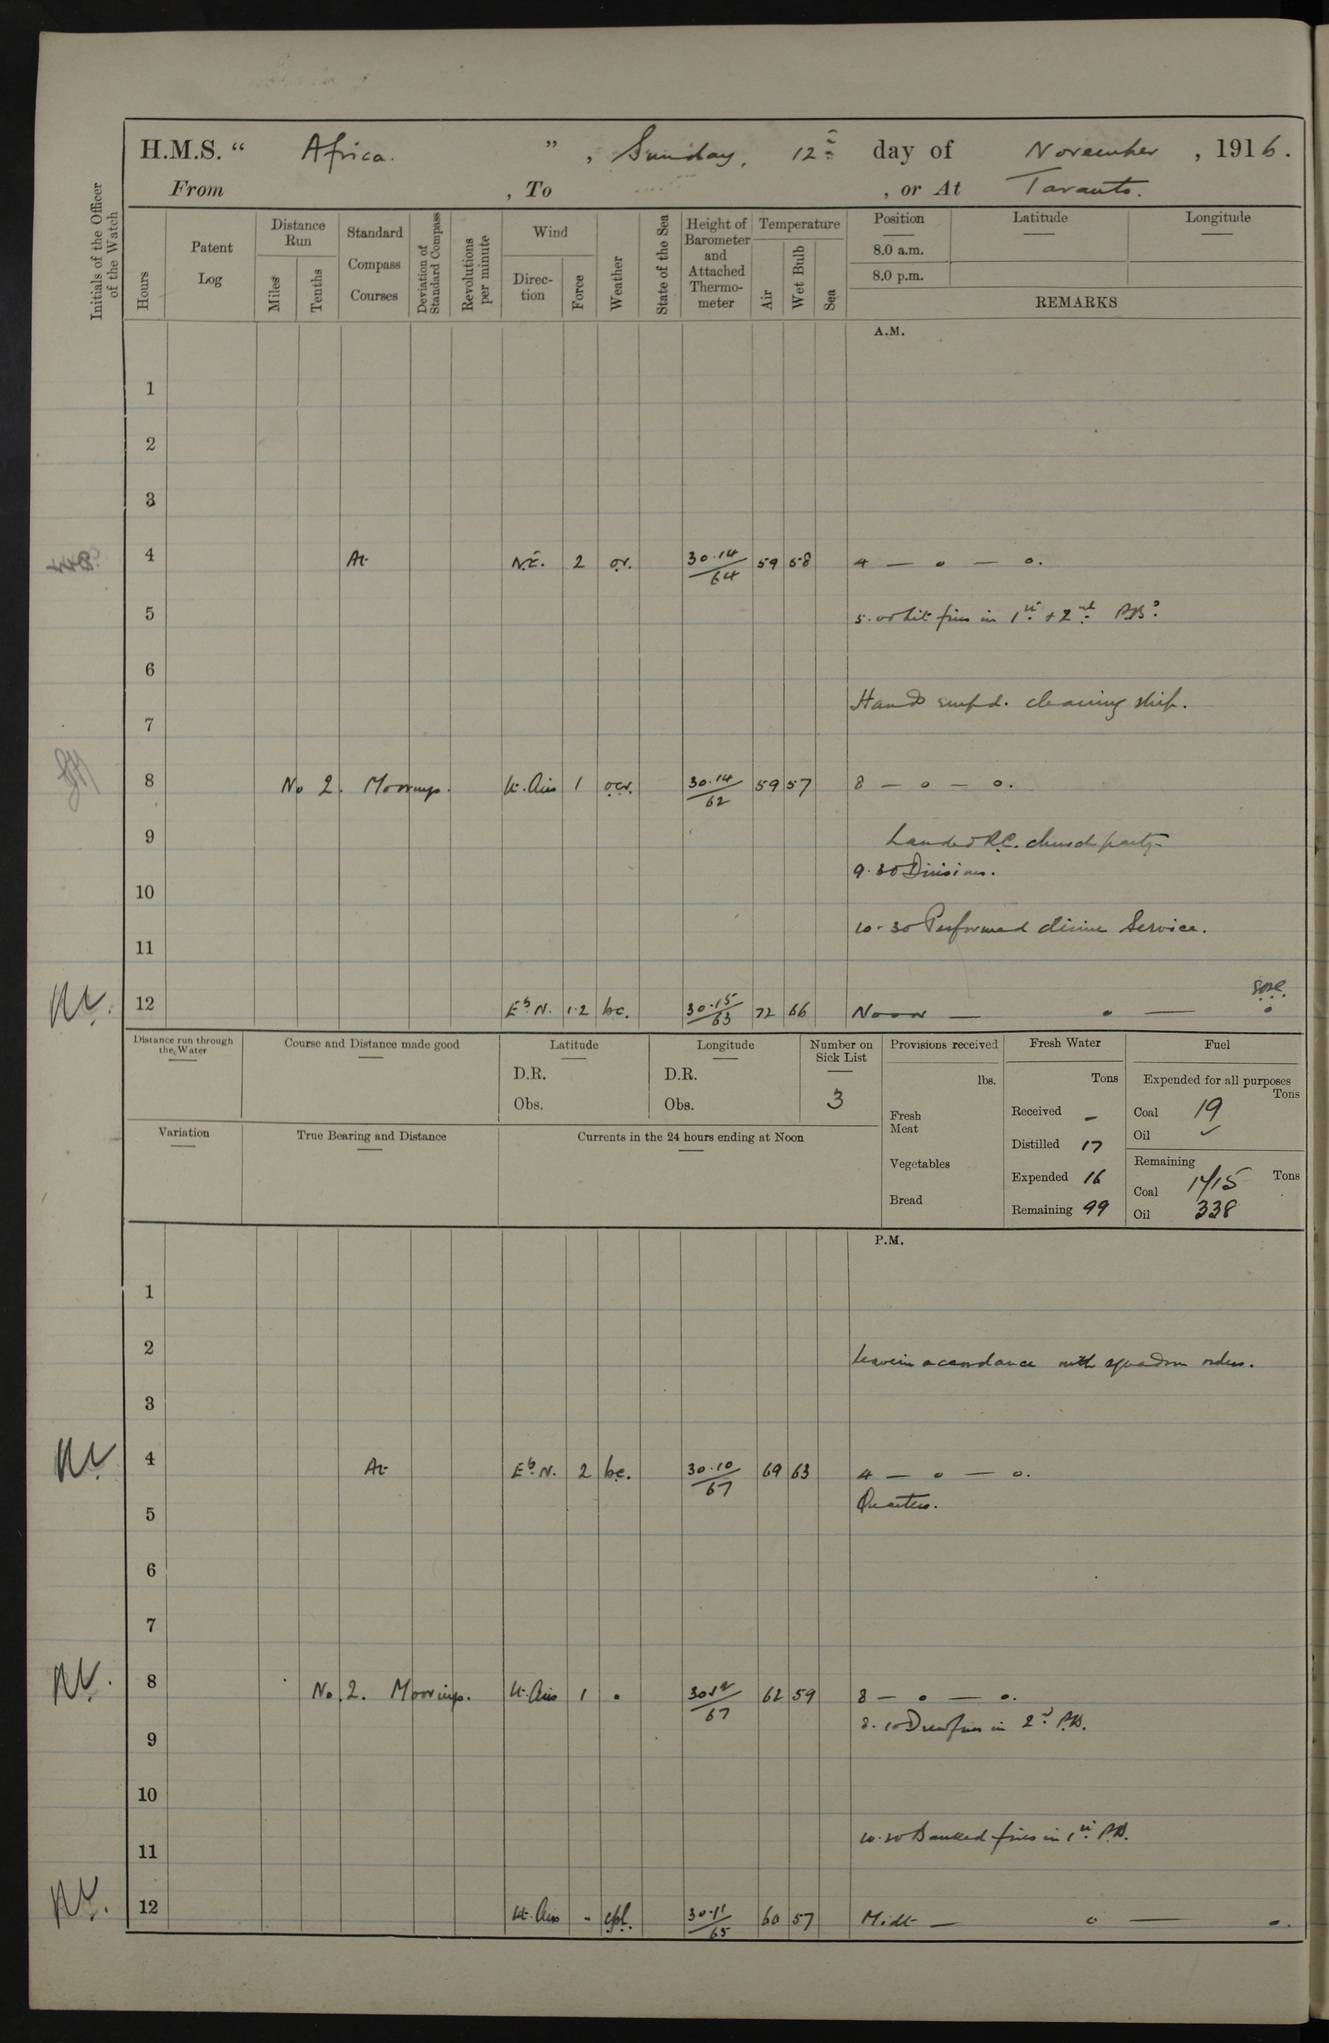 H.M.S. “ Africa. ” , Sunday, 12th day of November , 1916.
From , To , or At Taranto.
Initials of the Officer of the Watch
Hours
Patent Log
Distance Run
Miles
Tenths
Standard Compass Courses
Deviation of Standard Compass
Revolutions per minute
Wind
Direc-tion
Force
Weather
State of the Sea
Height of Barometer and Attached Thermo-meter
Temperature
Air
Wet Bulb
Sea
Position Latitude Longitude
8.0 a.m.
8.0 p.m.
REMARKS
A.M.
1
2
3
4 At N.E. 2 or. 30.14/64 59 58 4 — o — o.
5 5.00 Lit fires in 1st + 2nd P.Bs.
6
Hands empd. cleaning ship.
7
8 No 2. Moorings. Lt. Airs 1 ocr. 30.14/62 59 57 8 — o — o.
9 Landed R.C. church party
9.30 Divisions.
10
10.30 Performed divine Service.
11
12 E b N. 1.2 bc. 30.15/63 72 66 Noon — o —
Distance run through the Water
Course and Distance made good
Latitude
D.R.
Obs.
Longitude
D.R.
Obs.
Number on Sick List
3
Provisions received
lbs.
Fresh Meat
Vegetables
Bread
Fresh Water
Tons
Received –
Distilled 17
Expended 16
Remaining 99
Fuel
Expended for all purposes
Tons
Coal 19
Oil ✓
Remaining
Tons
Coal 1415
Oil 338
Variation
True Bearing and Distance
Currents in the 24 hours ending at Noon
P.M.
1
2 Leave in accordance with squadron orders.
3
4 At E b N. 2 bc. 30.10/67 69 63 4 — o — o.
Quarters.
5
6
7
8 No. 2. Moorings. Lt. Airs 1 . 30.12/67 62 59 8 — o — o.
8.10 Drew fires in 2nd P.B.
9
10
10.20 Banked fires in 1st P.B.
11
12 Lt. Airs - 30.11/65 60 57 Midt — o — o.